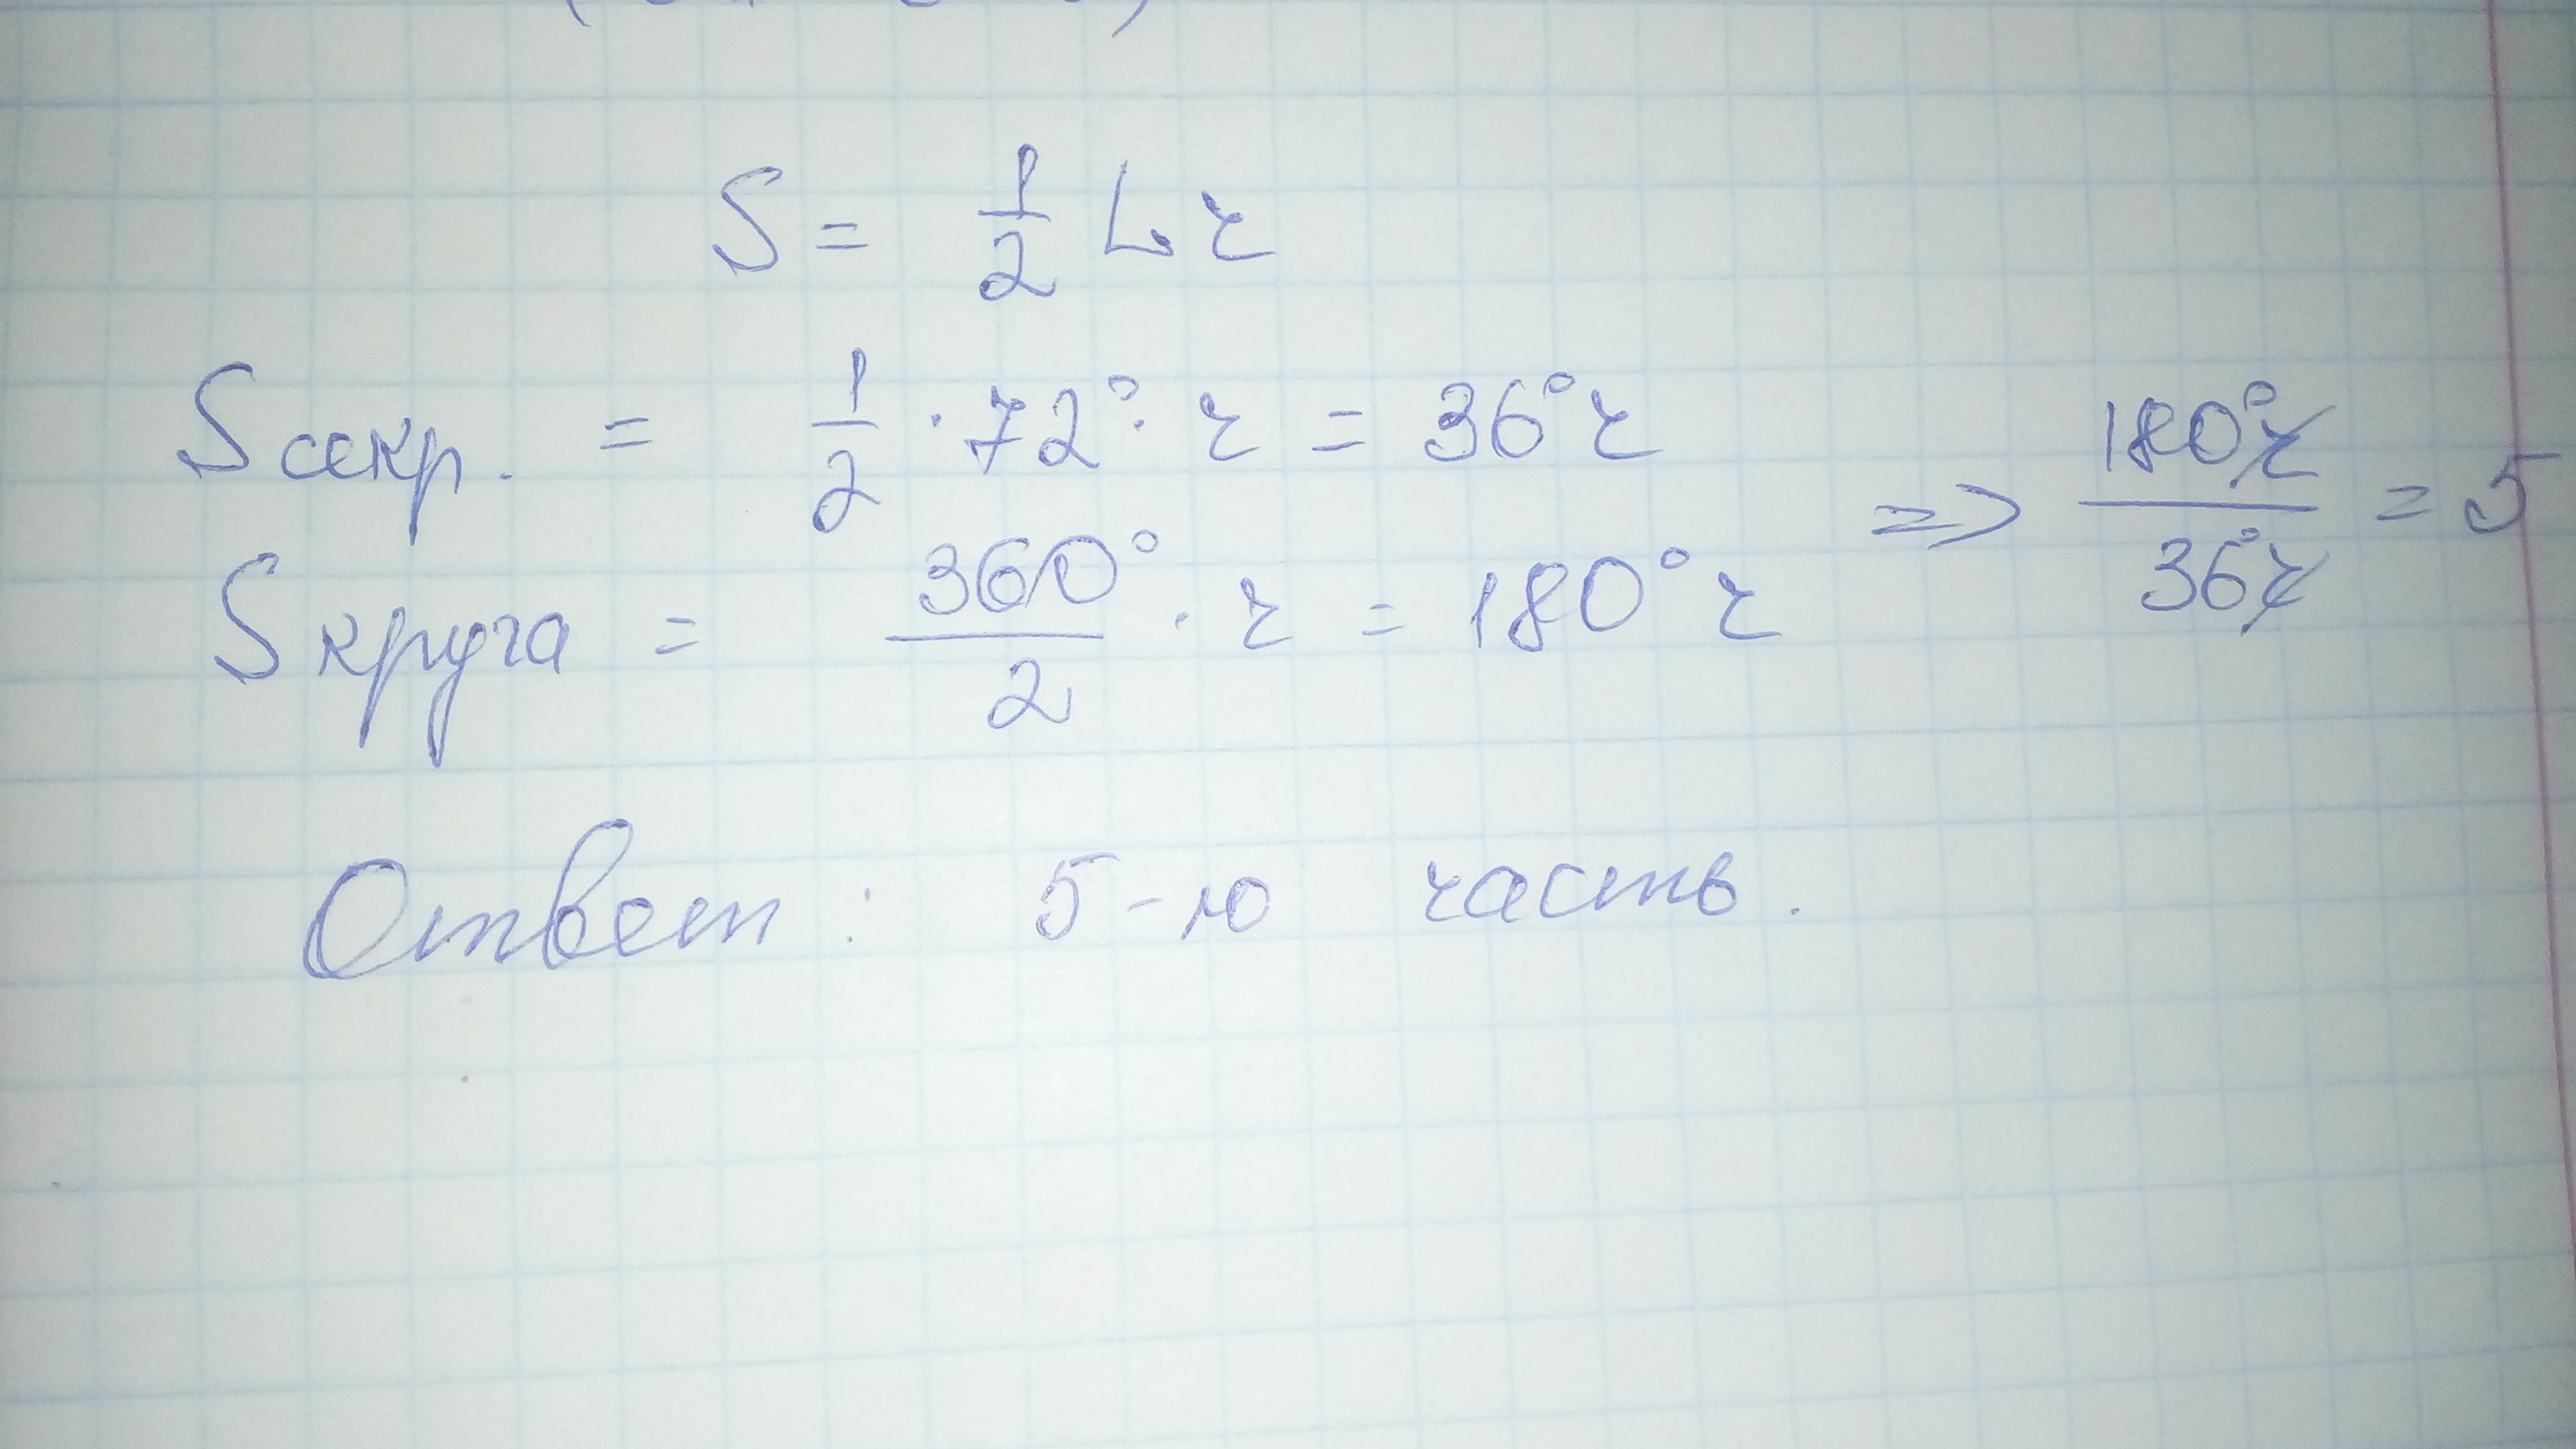 S = 1/2 L r
Sсекр. = 1/2 · 72° · r = 36° r
Sкруга = 360°/2 · r = 180° r
=> 180°r/36°r = 5
Ответ: 5-ю часть.